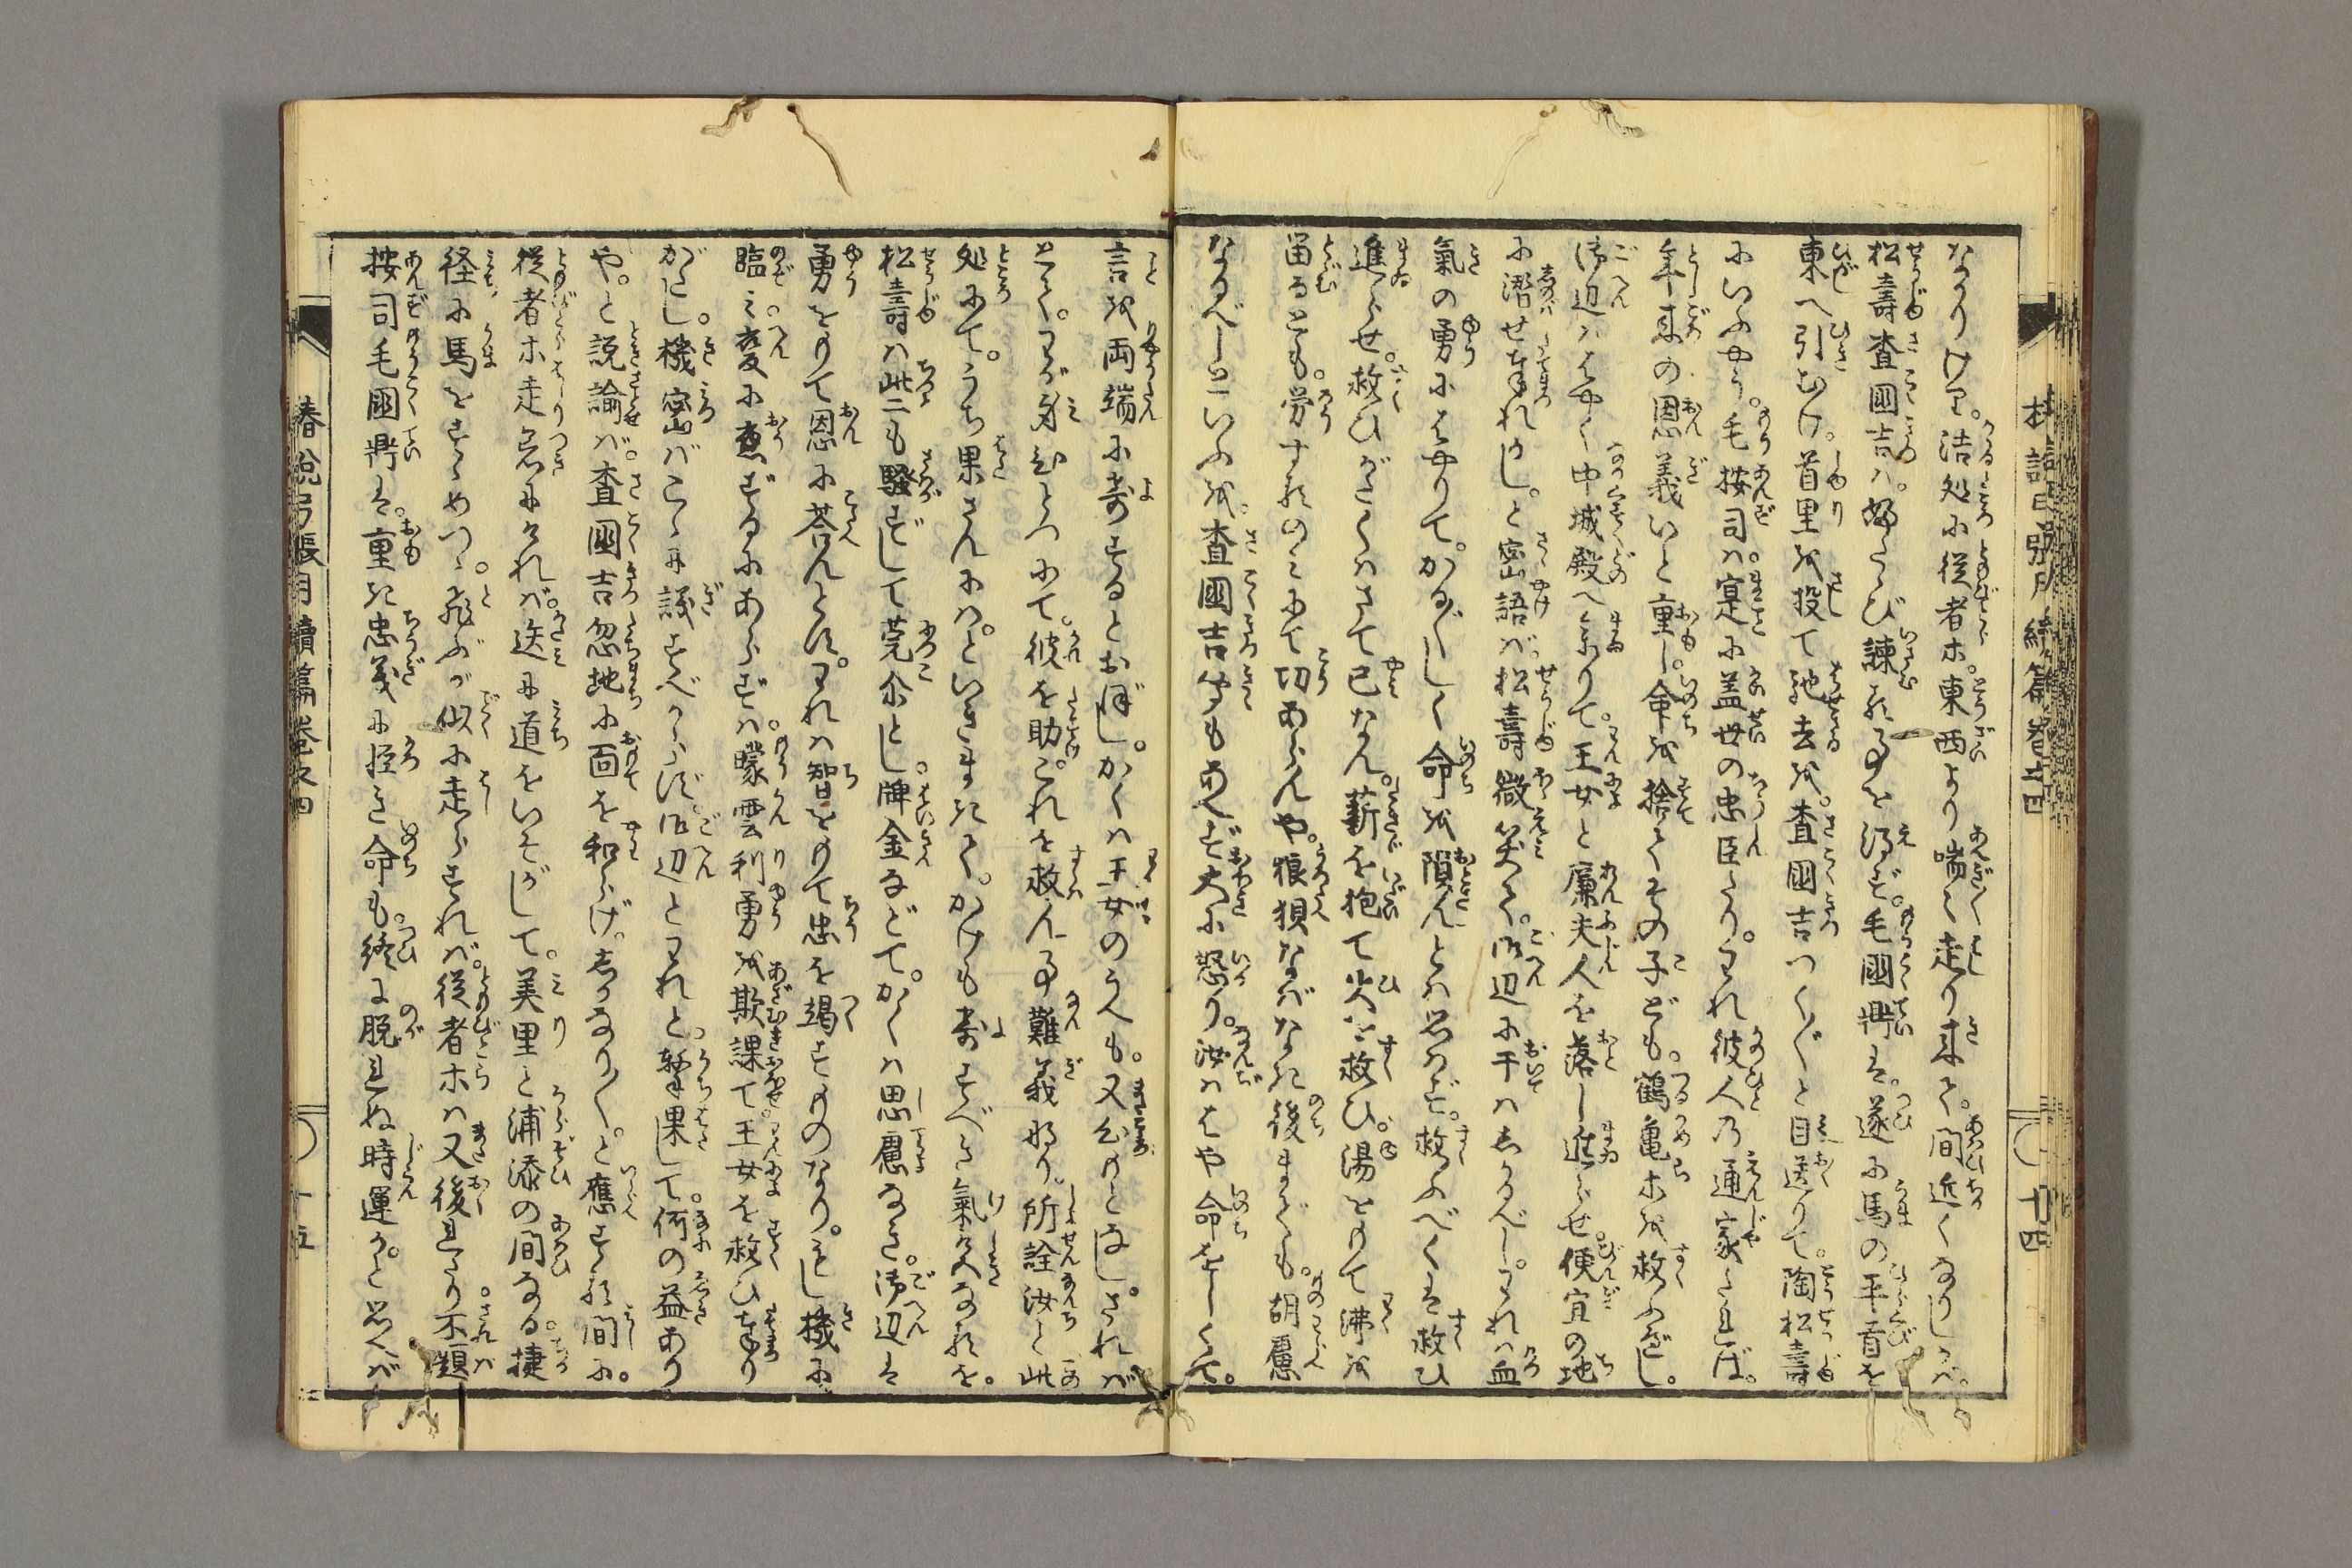 椿説弓張月續篇巻之四
〇十四
なかりけり。浩処に従者ホ。東西より喘々走り来て。間近くなりしかバ。
松壽査國吉ハ。ふたゝび諫るる事を得ず。毛國鼎は。遂に馬の平首を
東へ引むけ。首里を投て馳去を。査國吉つく〴〵と目送りて。陶松壽
にいふやう。毛按司ハ。寔に蓋世の忠臣たり。われ彼人の通家たれば。
年来の恩義いと重し。命を捨てその子ども。鶴亀ホを救ふべし。
御辺ハはやく中城殿へ参りて。王女と廉夫人を落し進らせ。便宜の地
に潜せ奉れかし。と密語バ。松壽微笑て。御辺に于ハしかるべし。われハ血
氣の勇にはやりて。かろ〴〵しく命を隕んとハ思ハず。救ふべくは救ひ
進らせ。救ひがたくハさて已なん。薪を抱て火を救ひ。湯をもて沸を
畄るとも。労するのミにて切あらんや。狼狽なバなき後までも。胡慮
なるべしといふを。査國吉聞もあへず大に怒り。汝ハはや命を惜くて。
言を両端に寄するとおぼし。かくハ王女のうへも。又心もとなし。されバ
とて。わが身ひとつにて。彼を助。これを救ん事難義なり。所詮汝と此
処にて。うち果さんにハ。といきまきて。かけも寄すべき氣色なるを。
松壽ハ些も騒ずして莞尓とし。牌金などて。かくハ思慮なき。御辺は
勇をもて恩に荅んとす。われハ智をもて忠を竭すものなり。もし機に
臨ミ。変に應ずるにあらずハ。曚雲利勇を欺課て王女を救ひ奉り
がたし。機密バこゝに議すべからず。御辺とわれと。撃果して。何の益あり
や。と説諭せバ。査國吉忽地に面を和らげ。しかなり〳〵。と應する間に。
従者ホ走着にければ。送に道をいそがして。美里と浦添の間なる。捷
径に馬をすゝめつゝ。飛ぶが似に走らすれバ。従者ホハ又後れたり。不題
按司毛國鼎は。重き忠義に軽き命も。終に脱れぬ時運か。と思へバ
椿説弓張月續篇巻之四
〇十五